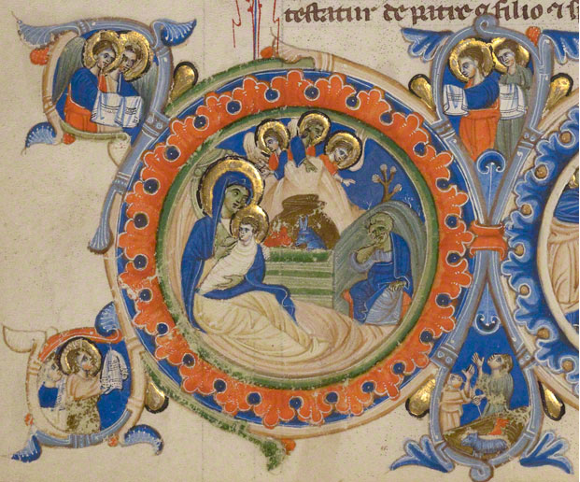 testatur de patre & filio & s